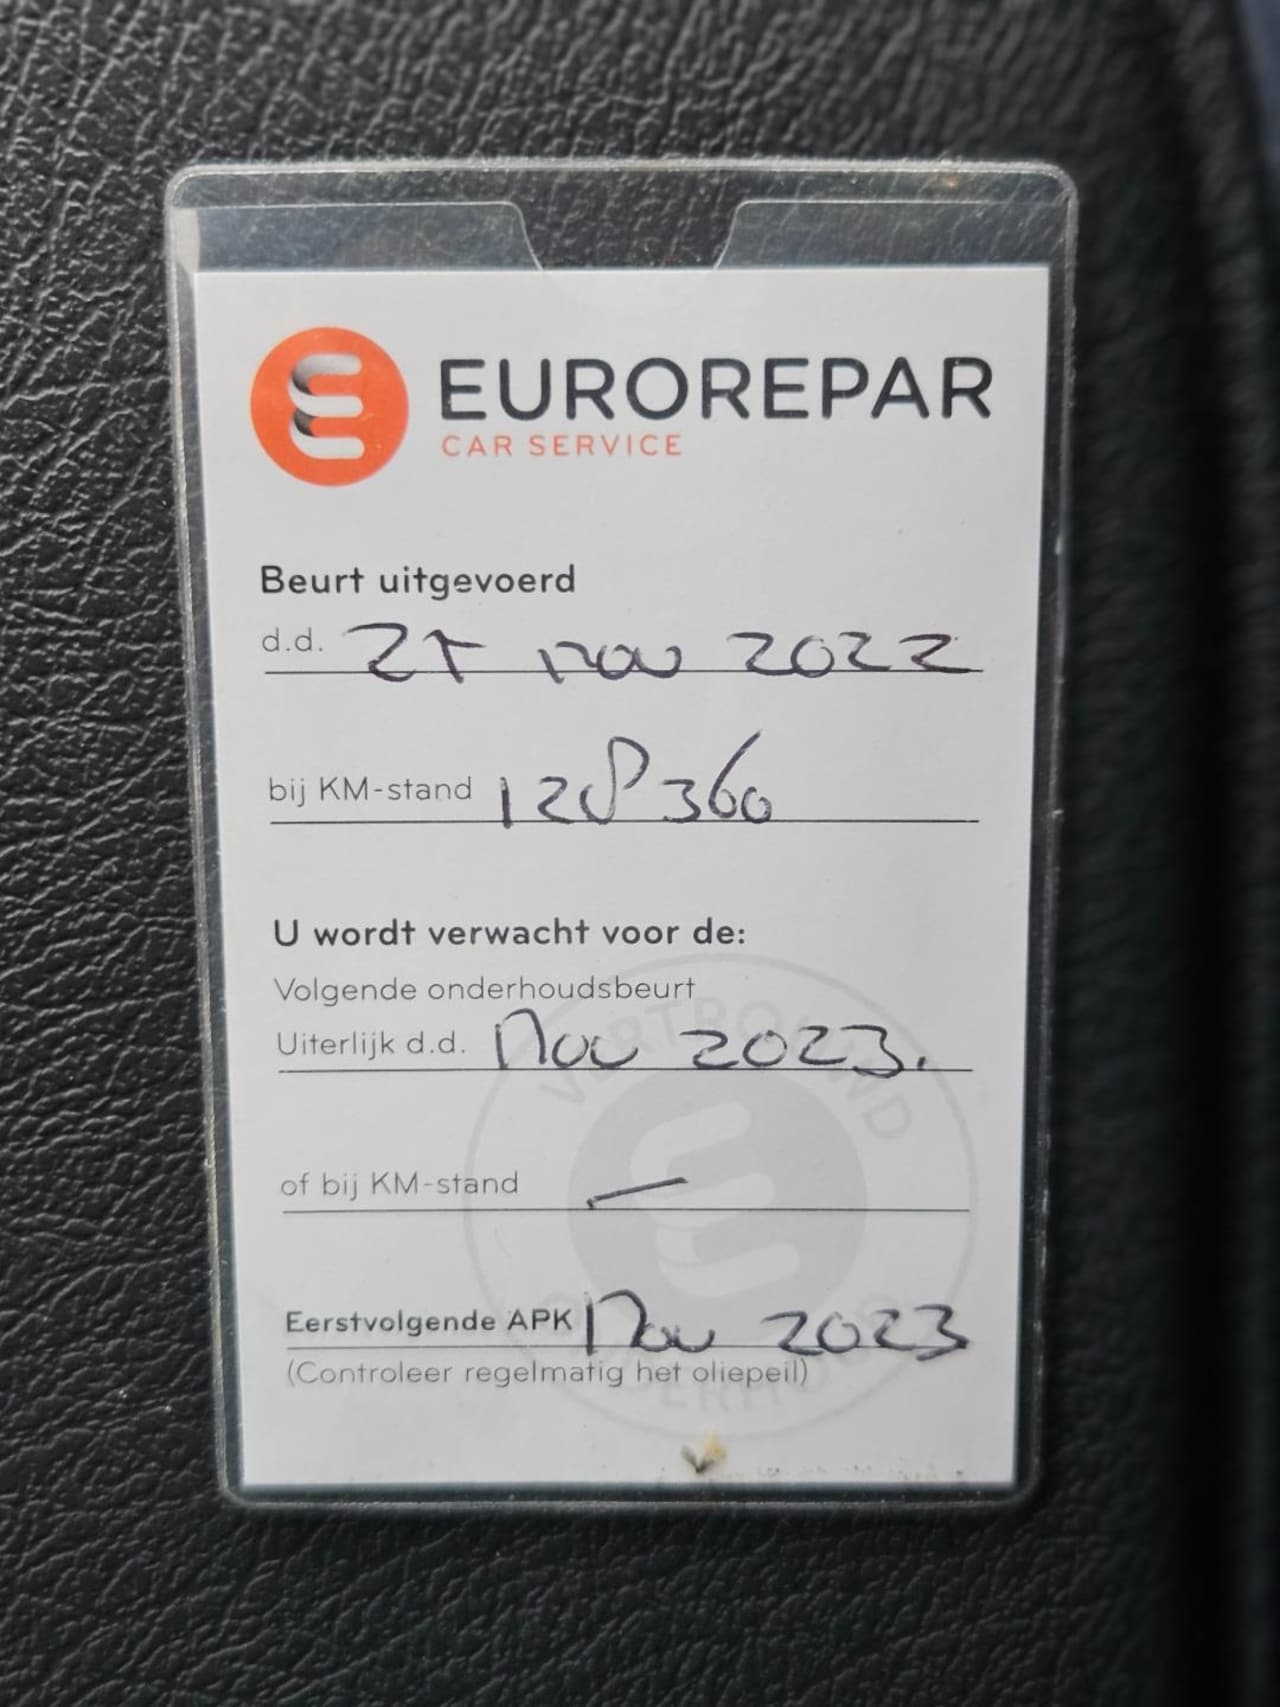 EUROREPAR
CAR SERVICE
Beurt uitgevoerd
d.d. 27 nov 2022
bij KM-stand 128360
U wordt verwacht voor de:
Volgende onderhoudsbeurt
Uiterlijk d.d. Nov 2023.
of bij KM-stand —
Eerstvolgende APK Nov 2023
(Controleer regelmatig het oliepeil)
VERTROUWD
ONDERHOUD